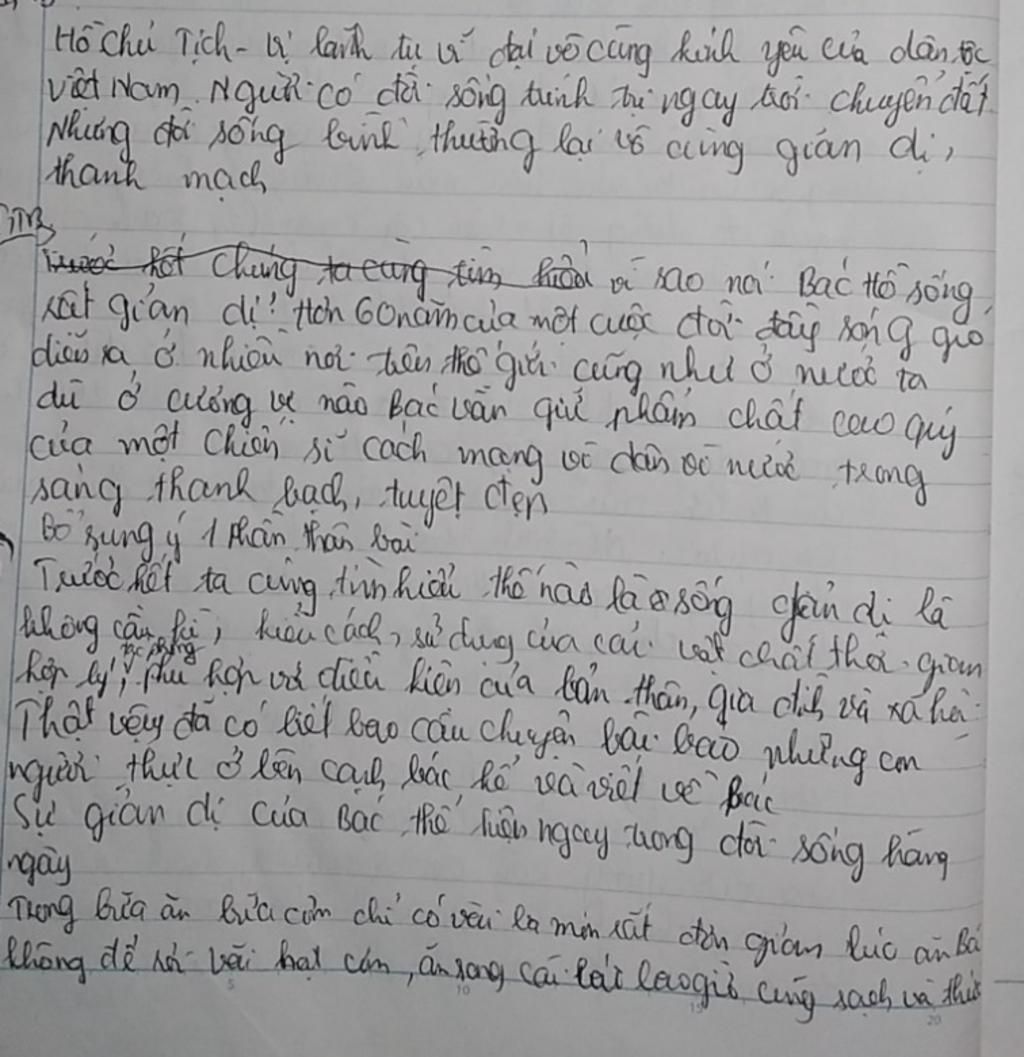 Hồ Chủ Tịch - vị lãnh tụ vĩ đại vô cùng kính yêu của dân tộc
Việt Nam. Người có đời sống chính trị ngay trời chuyển đất
Nhưng đời sống bình thường lại vô cùng giản dị,
thanh mạch
TB
Trước hết chúng ta cùng tìm hiểu vì sao nói Bác Hồ sống
rất giản dị? Hơn 60 năm của một cuộc đời đầy sóng gió
diễn ra ở nhiều nơi trên thế giới cũng như ở nước ta
dù ở cương vị nào Bác vẫn giữ phẩm chất cao quý
của một chiến sĩ cách mạng vì dân vì nước trong
sáng thanh bạch, tuyệt đẹp
Bổ sung ý 1 phần thân bài
Trước hết ta cùng tìm hiểu thế nào là sống giản dị là
không cầu kì, kiểu cách, sử dụng của cải vật chất thời gian
hợp lý, tác phong phù hợp với điều kiện của bản thân, gia đình và xã hội
Thật vậy đã có biết bao câu chuyện bài báo những con
người thực ở bên cạnh bác kể và viết về Bác
Sự giản dị của Bác thể hiện ngay trong đời sống hàng
ngày
Trong bữa ăn bữa cơm chỉ có vài ba món rất đơn giản lúc ăn Bá
không để rơi vãi hạt cơm, ăn song cái bát bao giờ cũng sạch và thức
5 10 15 20